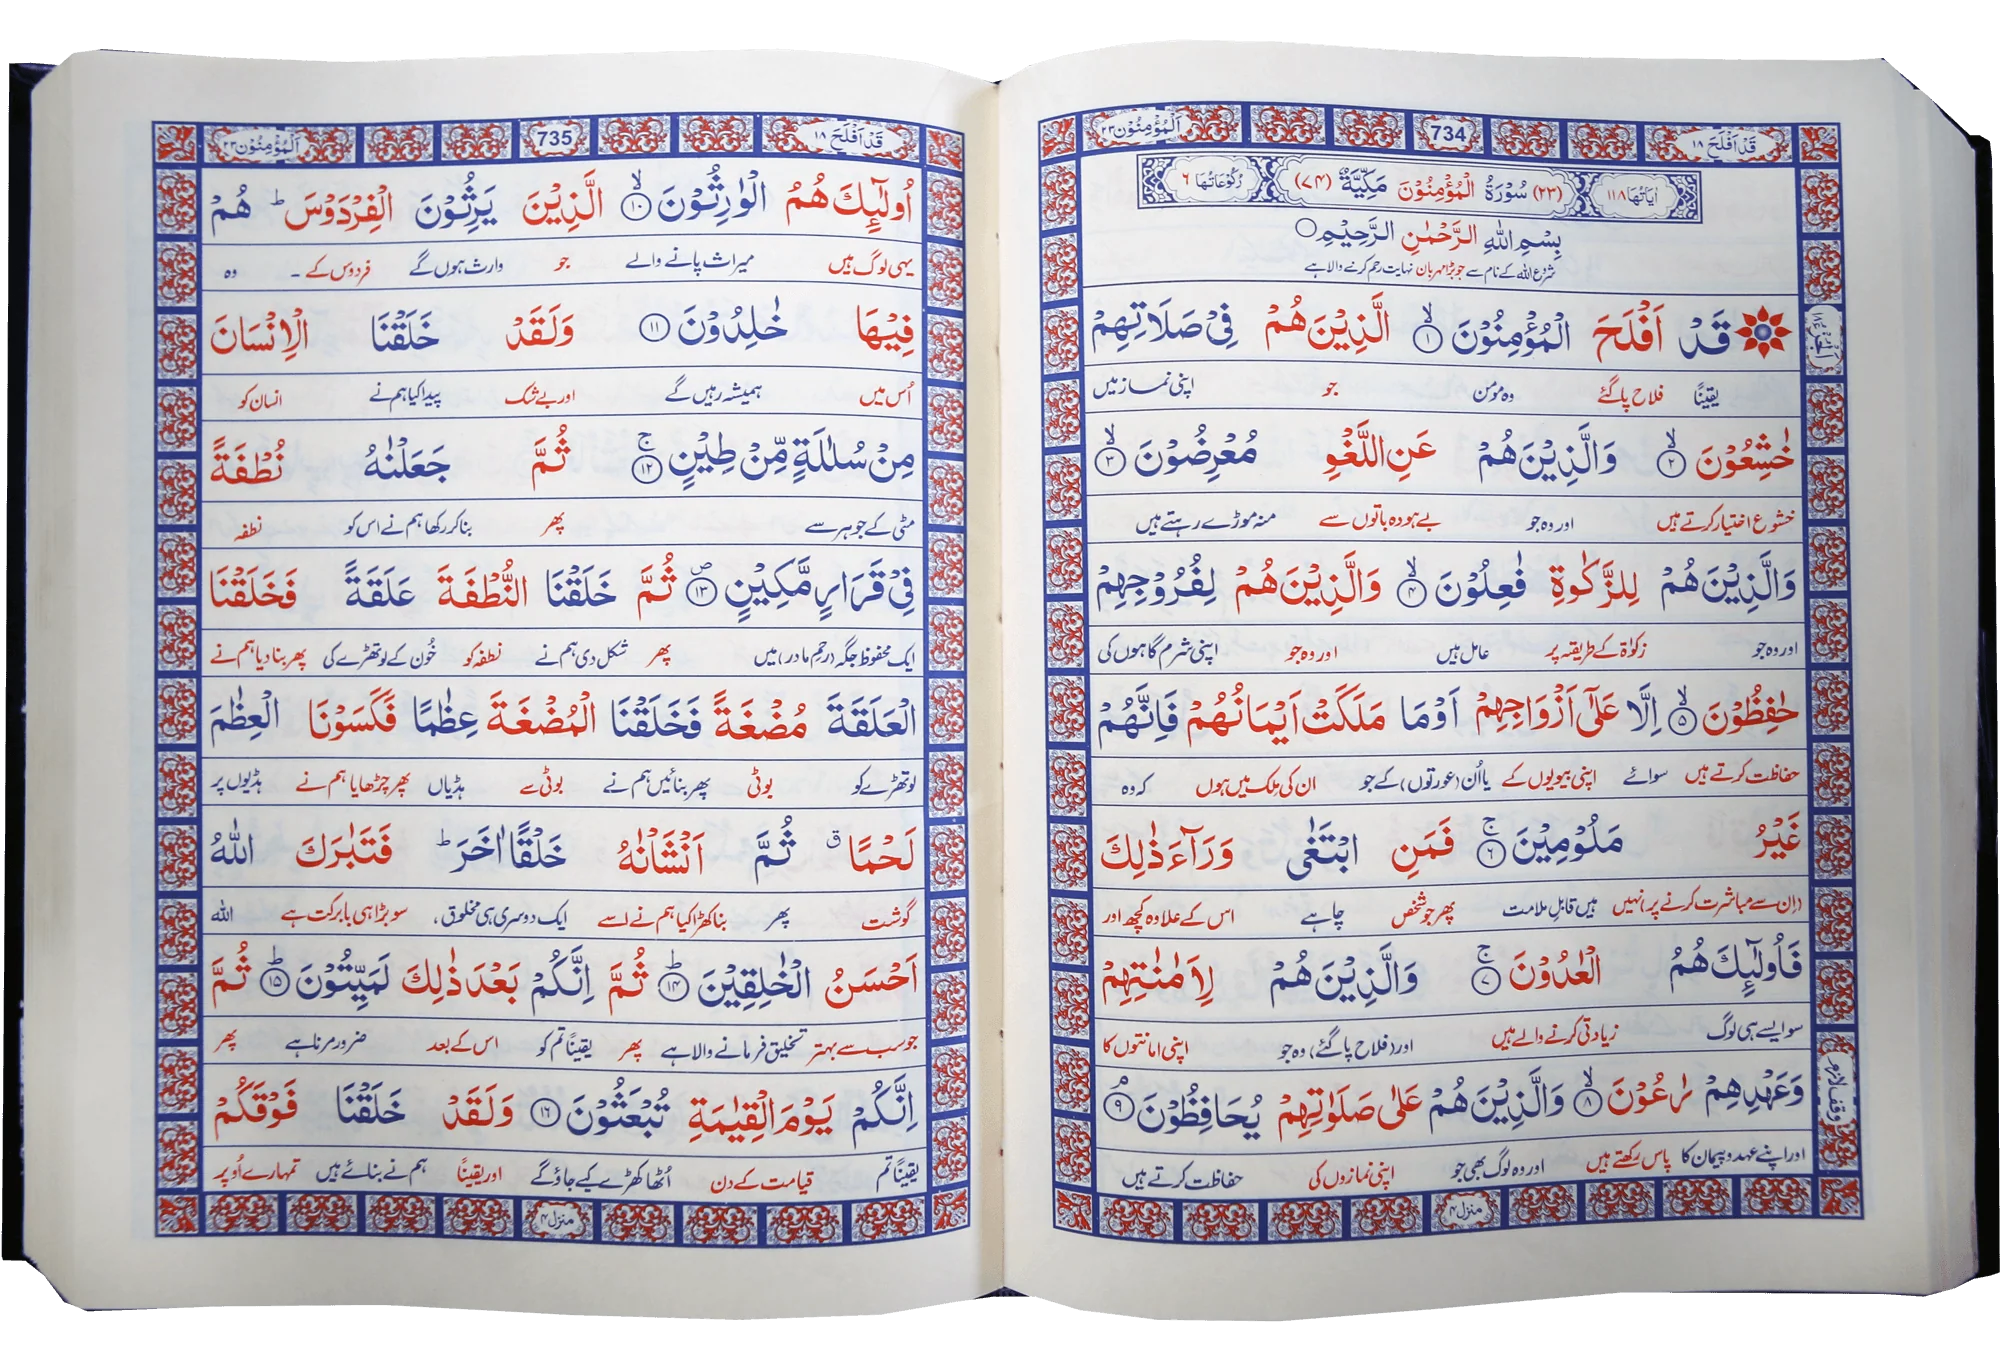 اَلْمُؤْمِنُوْن ۲۳ 734 قَدْ اَفْلَحَ ۱۸
اٰیَاتُهَا ۱۱۸ (۲۳) سُوْرَةُ الْمُؤْمِنُوْنَ مَكِّیَّةٌ (۷۴) رُكُوْعَاتُهَا ۶
بِسْمِ اللهِ الرَّحْمٰنِ الرَّحِیْمِ
شروع اللہ کے نام سے جو بڑا مہربان نہایت رحم کرنے والا ہے
الجزء ۱۸
قَدْ اَفْلَحَ الْمُؤْمِنُوْنَ ۙ۱ الَّذِیْنَ هُمْ فِیْ صَلَاتِهِمْ
یقینًا فلاح پا گئے وہ مومن جو اپنی نماز میں
خٰشِعُوْنَ ۙ۲ وَالَّذِیْنَ هُمْ عَنِ اللَّغْوِ مُعْرِضُوْنَ ۙ۳
خشوع اختیار کرتے ہیں اور وہ جو بے ہودہ باتوں سے منہ موڑے رہتے ہیں
وَالَّذِیْنَ هُمْ لِلزَّكٰوةِ فٰعِلُوْنَ ۙ۴ وَالَّذِیْنَ هُمْ لِفُرُوْجِهِمْ
اور وہ جو زکوٰۃ کے طریقہ پر عامل ہیں اور وہ جو اپنی شرم گاہوں کی
حٰفِظُوْنَ ۙ۵ اِلَّا عَلٰۤی اَزْوَاجِهِمْ اَوْ مَا مَلَكَتْ اَیْمَانُهُمْ فَاِنَّهُمْ
حفاظت کرتے ہیں سوائے اپنی بیویوں کے یا اُن (عورتوں) کے جو ان کی مِلک میں ہوں کہ وہ
غَیْرُ مَلُوْمِیْنَ ۚ۶ فَمَنِ ابْتَغٰی وَرَآءَ ذٰلِكَ
(اِن سے مباشرت کرنے پر) نہیں ہیں قابلِ ملامت پھر جو شخص چاہے اس کے علاوہ کچھ اور
فَاُولٰٓئِكَ هُمُ الْعٰدُوْنَ ۚ۷ وَالَّذِیْنَ هُمْ لِاَمٰنٰتِهِمْ
سو ایسے ہی لوگ زیادتی کرنے والے ہیں اور (فلاح پا گئے) وہ جو اپنی امانتوں کا
وقف لازم
وَعَهْدِهِمْ رٰعُوْنَ ۙ۸ وَالَّذِیْنَ هُمْ عَلٰی صَلَوٰتِهِمْ یُحَافِظُوْنَ ۘ۹
اور اپنے عہد و پیمان کا پاس رکھتے ہیں اور وہ لوگ بھی جو اپنی نمازوں کی حفاظت کرتے ہیں
منزل ۴
اَلْمُؤْمِنُوْن ۲۳ 735 قَدْ اَفْلَحَ ۱۸
اُولٰٓئِكَ هُمُ الْوٰرِثُوْنَ ۙ۱۰ الَّذِیْنَ یَرِثُوْنَ الْفِرْدَوْسَ ؕ هُمْ
یہی لوگ ہیں میراث پانے والے جو وارث ہوں گے فردوس کے ۔ وہ
فِیْهَا خٰلِدُوْنَ ۱۱ وَلَقَدْ خَلَقْنَا الْاِنْسَانَ
اُس میں ہمیشہ رہیں گے اور بے شک پیدا کیا ہم نے انسان کو
مِنْ سُلٰلَةٍ مِّنْ طِیْنٍ ۚ۱۲ ثُمَّ جَعَلْنٰهُ نُطْفَةً
مٹی کے جوہر سے پھر بنا کر رکھا ہم نے اس کو نطفہ
فِیْ قَرَارٍ مَّكِیْنٍ ۪۱۳ ثُمَّ خَلَقْنَا النُّطْفَةَ عَلَقَةً فَخَلَقْنَا
ایک محفوظ جگہ (رحمِ مادر) میں پھر شکل دی ہم نے نطفہ کو خُون کے لوتھڑے کی پھر بنا دیا ہم نے
الْعَلَقَةَ مُضْغَةً فَخَلَقْنَا الْمُضْغَةَ عِظٰمًا فَكَسَوْنَا الْعِظٰمَ
لوتھڑے کو بوٹی پھر بنائیں ہم نے بوٹی سے ہڈیاں پھر چڑھایا ہم نے ہڈیوں پر
لَحْمًا ۗ ثُمَّ اَنْشَاْنٰهُ خَلْقًا اٰخَرَ ؕ فَتَبٰرَكَ اللهُ
گوشت پھر بنا کھڑا کیا ہم نے اسے ایک دوسری ہی مخلوق، سو بڑا ہی بابرکت ہے اللہ
اَحْسَنُ الْخٰلِقِیْنَ ؕ۱۴ ثُمَّ اِنَّكُمْ بَعْدَ ذٰلِكَ لَمَیِّتُوْنَ ؕ۱۵ ثُمَّ
جو سب سے بہتر تخلیق فرمانے والا ہے پھر یقینًا تم کو اس کے بعد ضرور مرنا ہے پھر
اِنَّكُمْ یَوْمَ الْقِیٰمَةِ تُبْعَثُوْنَ ۱۶ وَلَقَدْ خَلَقْنَا فَوْقَكُمْ
یقینًا تم قیامت کے دن اُٹھا کھڑے کیے جاؤ گے اور یقینًا ہم نے بنائے ہیں تمہارے اُوپر
منزل ۴